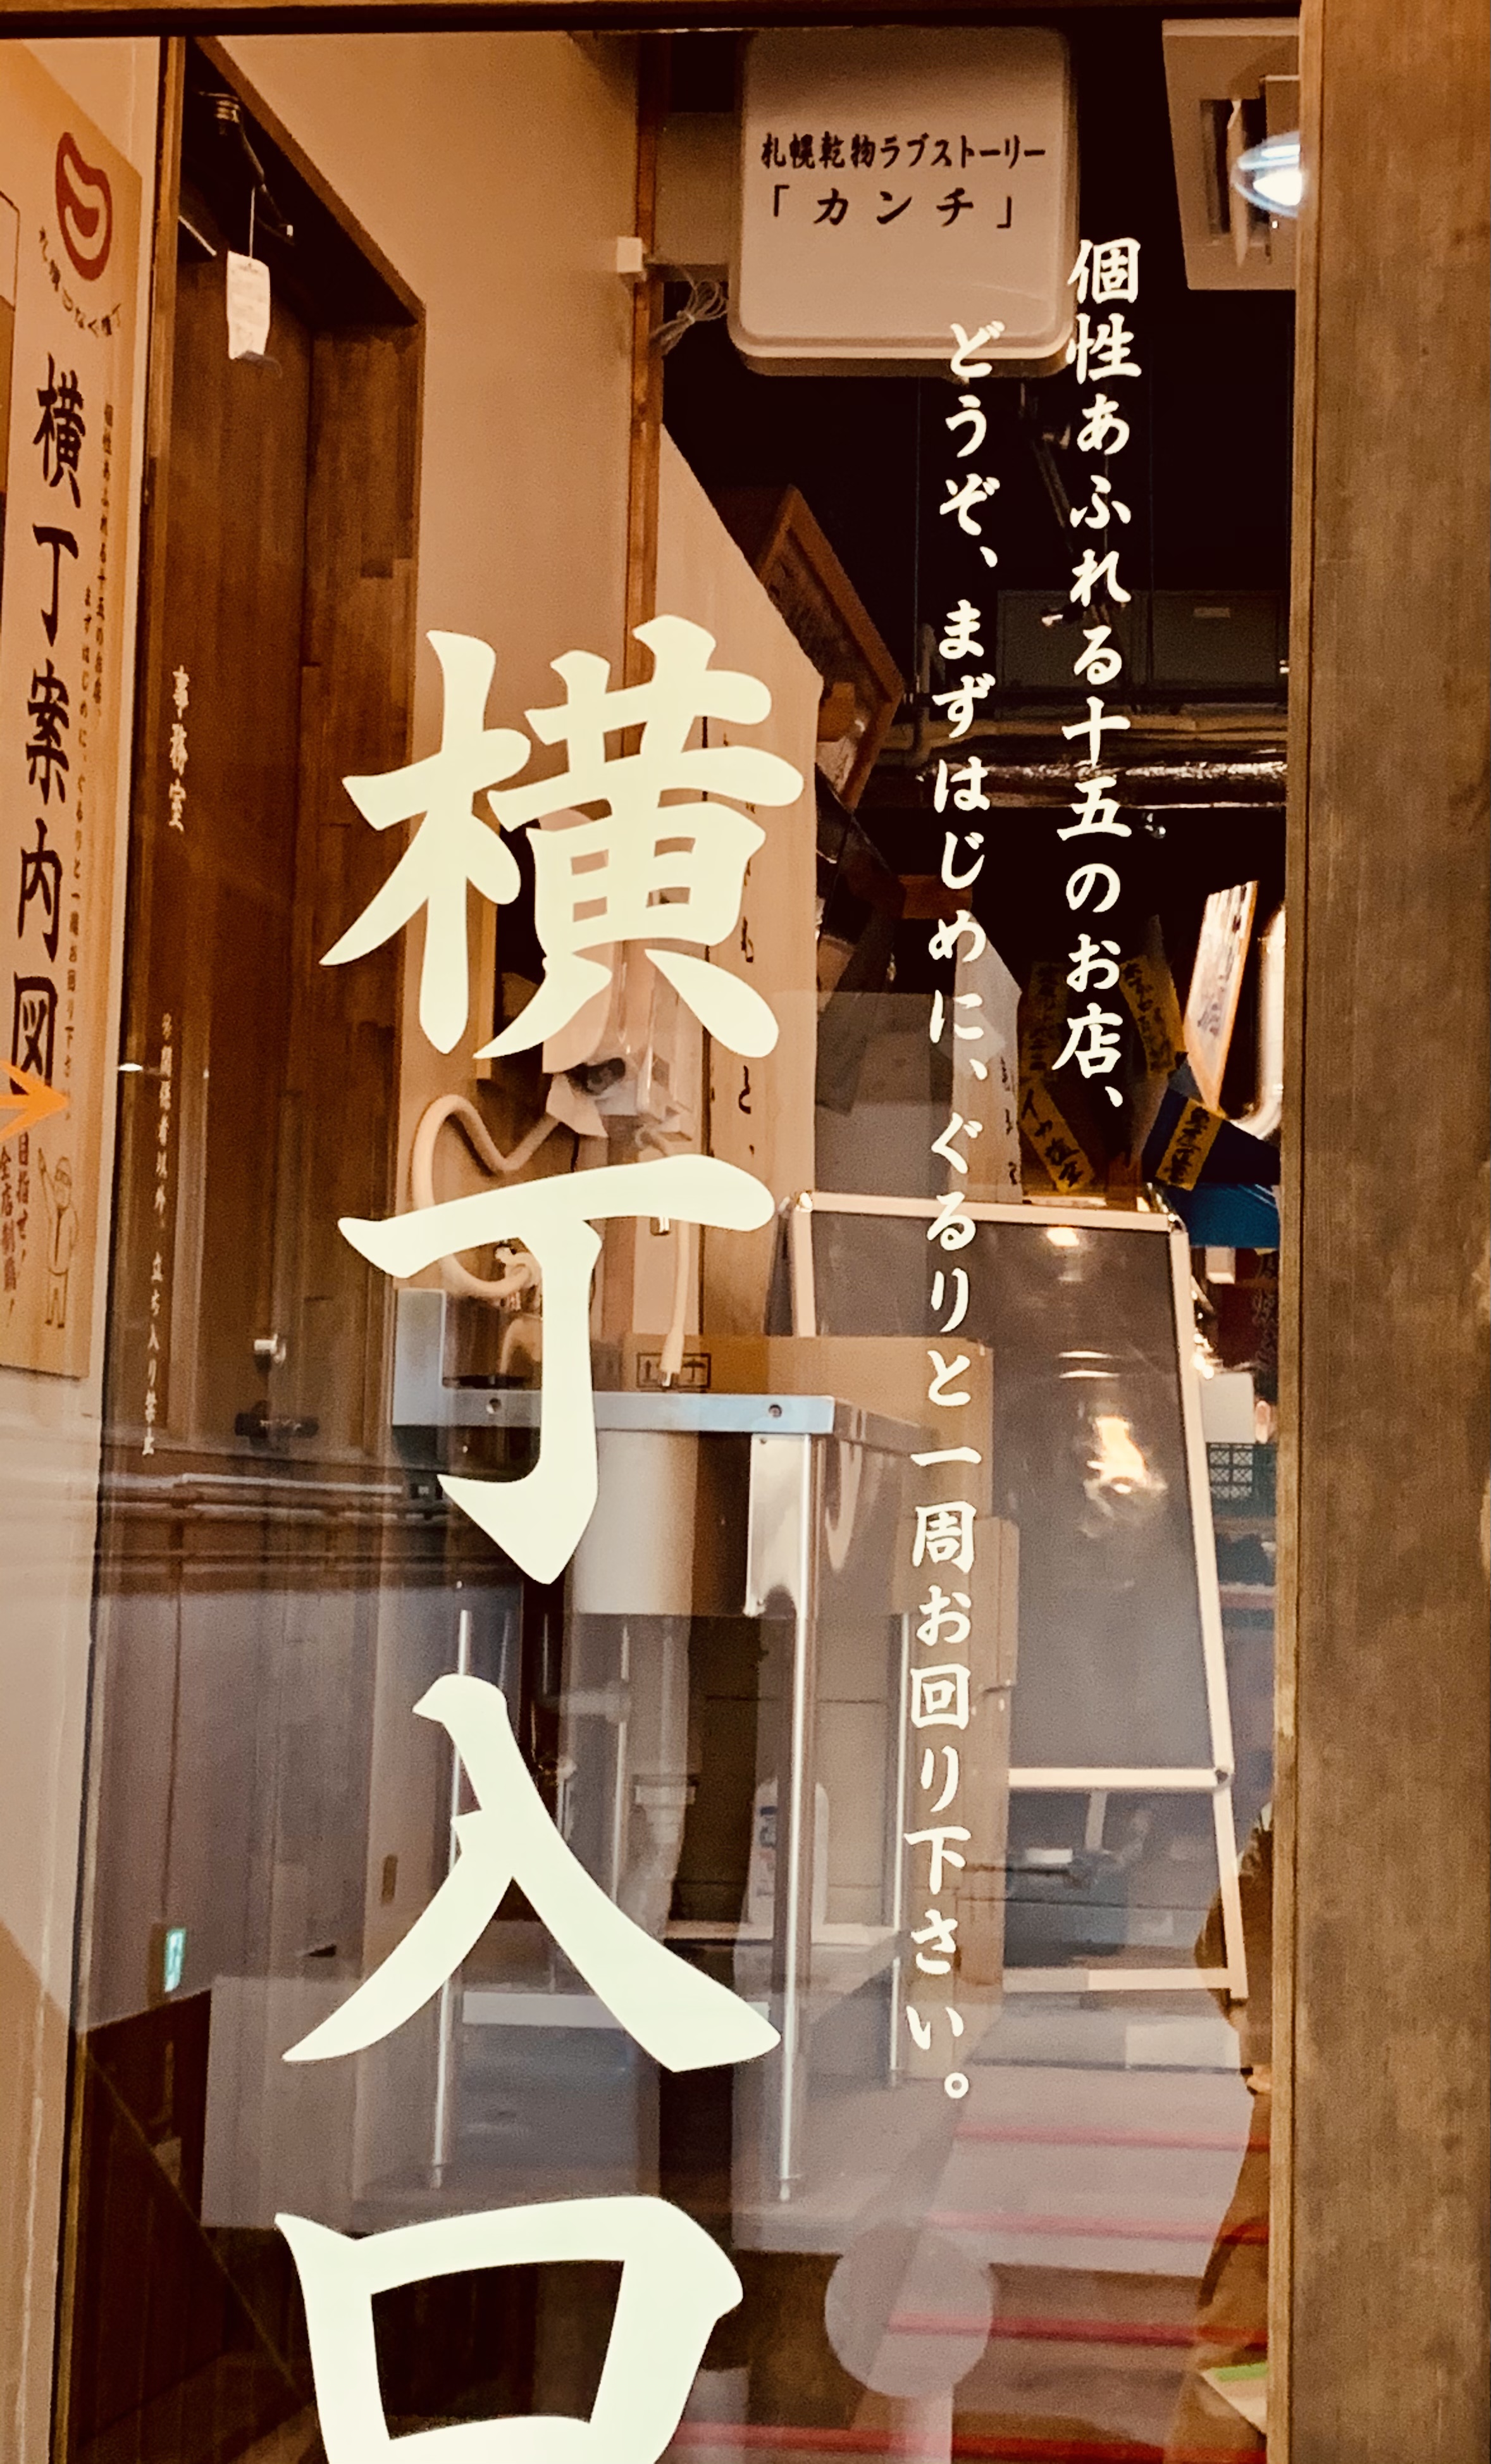 札幌乾物ラブストーリー
「カンチ」
個性あふれる十五のお店、
どうぞ、まずはじめに、ぐるりと一周お回り下さい。
横丁入口
事務室
立ち入り禁止
横丁案内図
個性あふれる十五のお店、
まずはじめに、ぐるりと一周お回り下さい。
札幌つなぐ横丁
目指せ！
全店制覇！